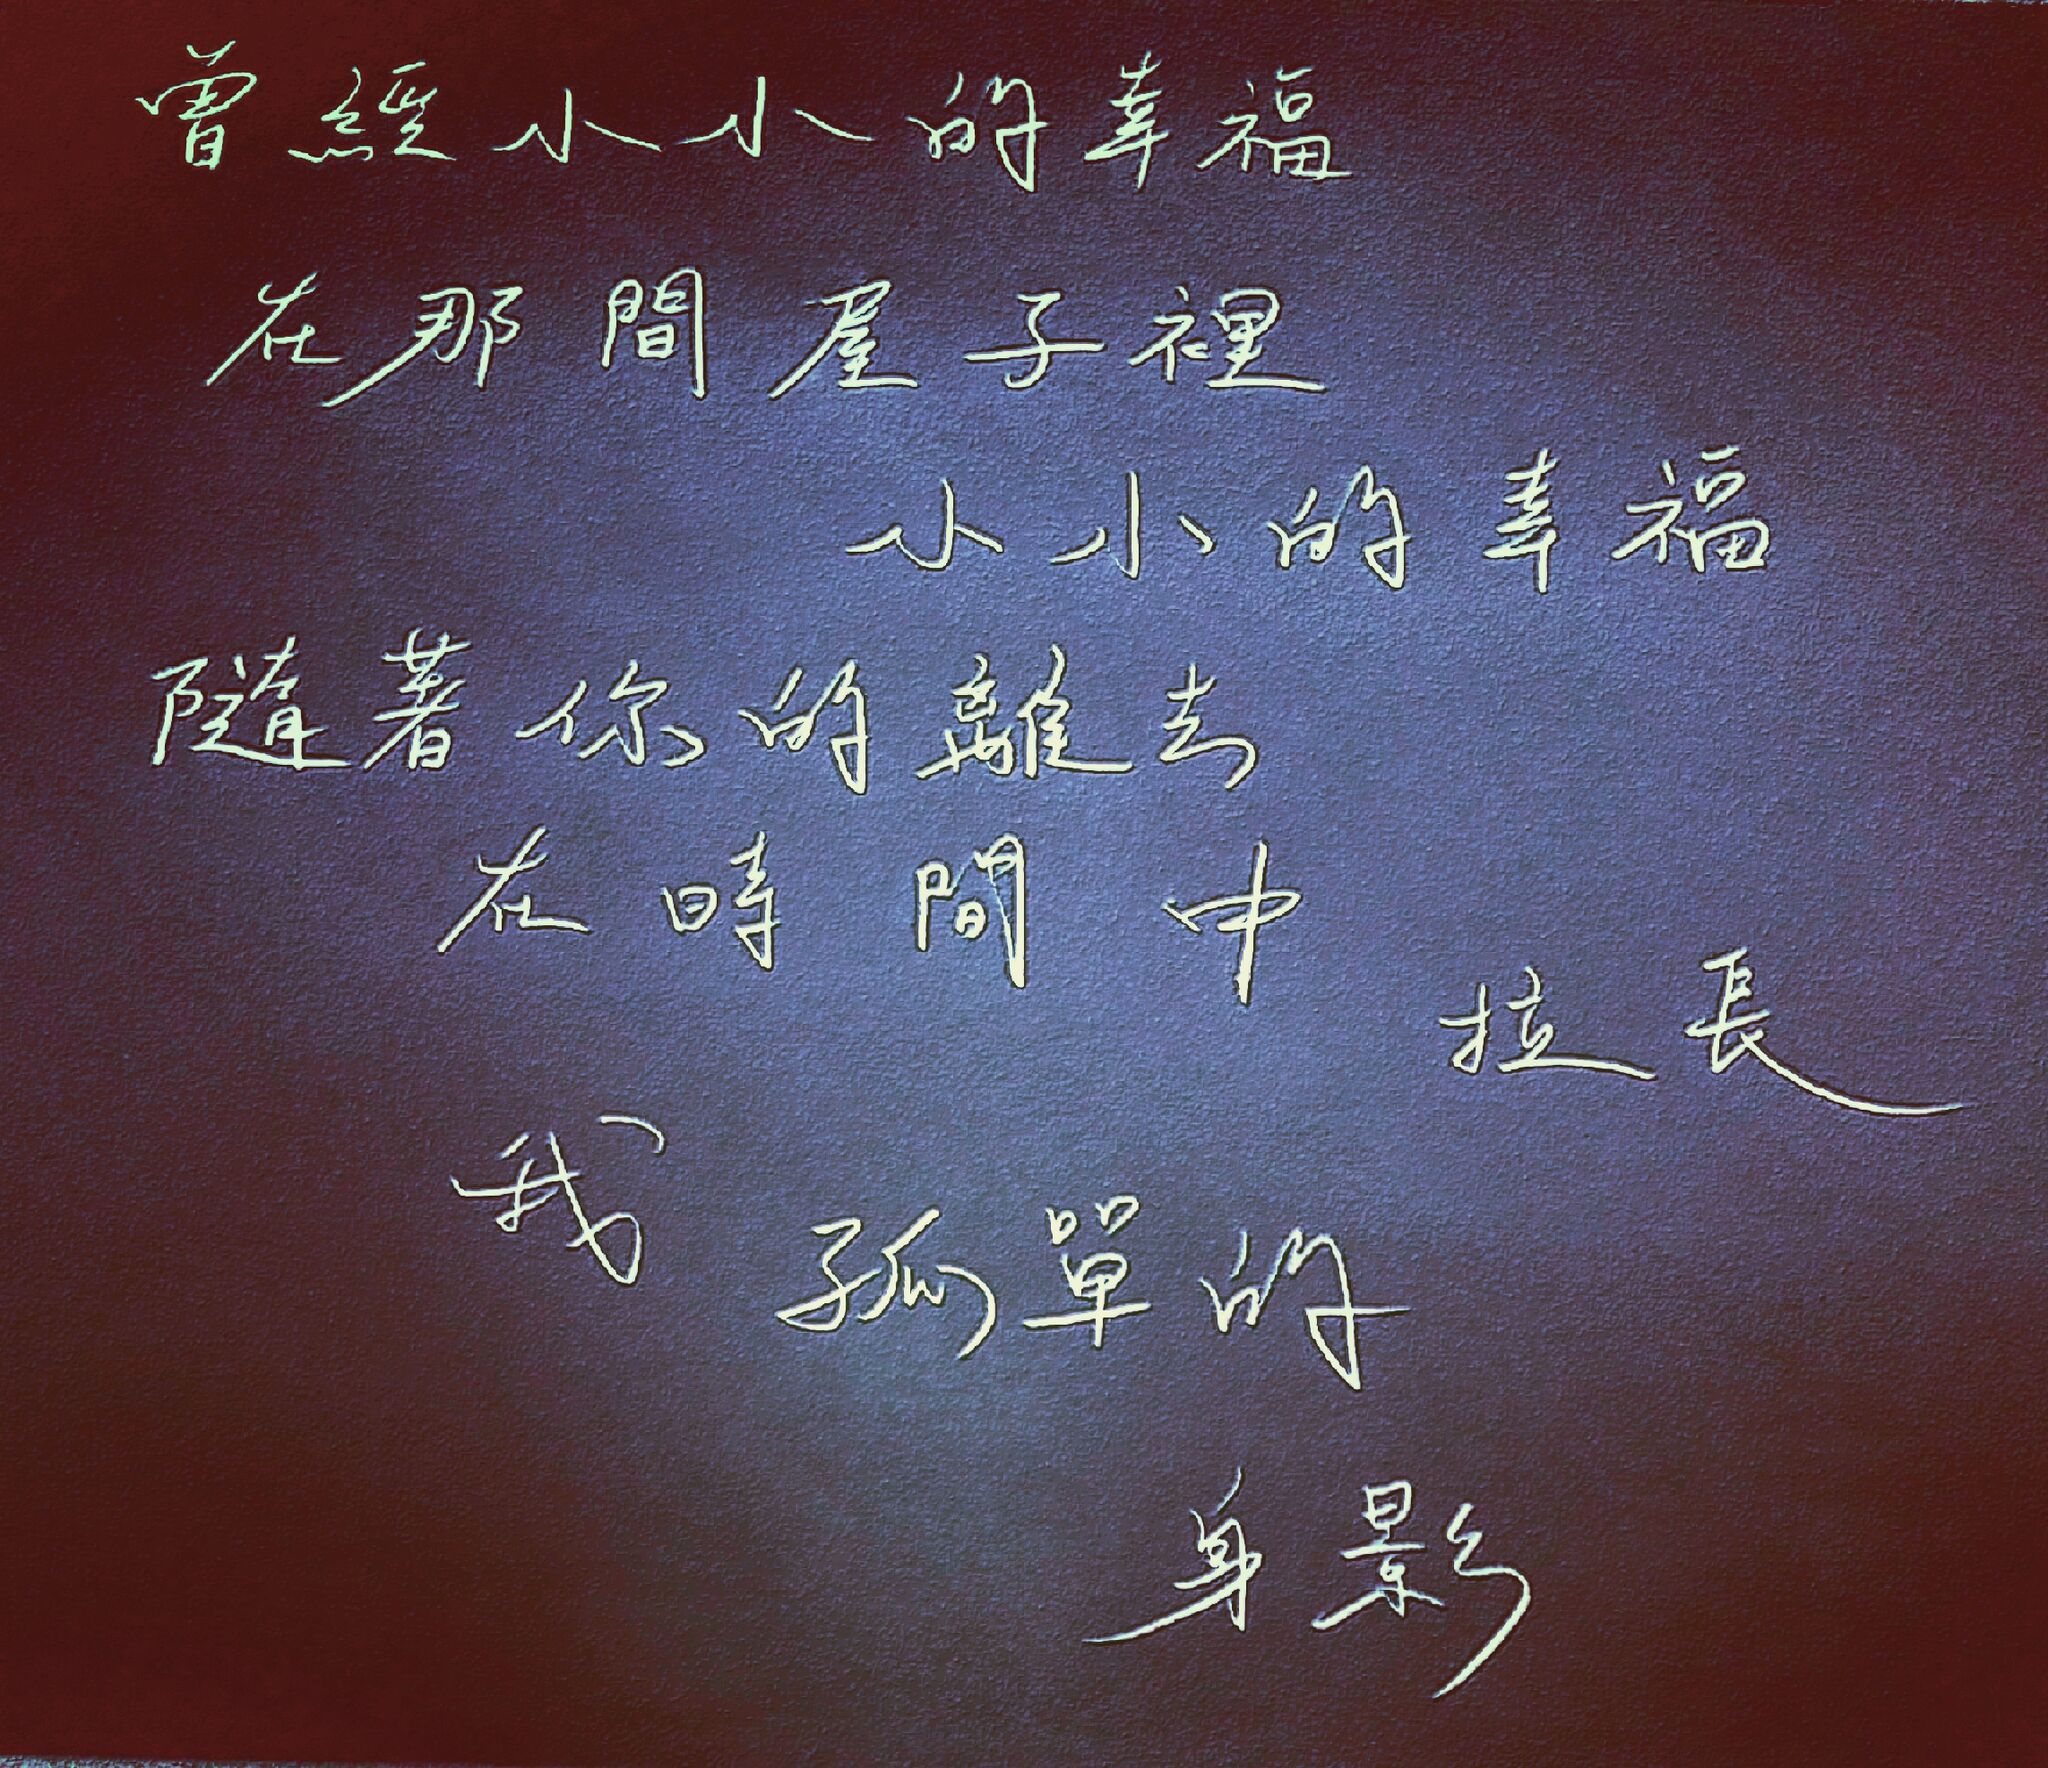 曾經小小的幸福
在那間屋子裡
小小的幸福
隨著你的離去
在時間中
拉長
我
孤單的
身影